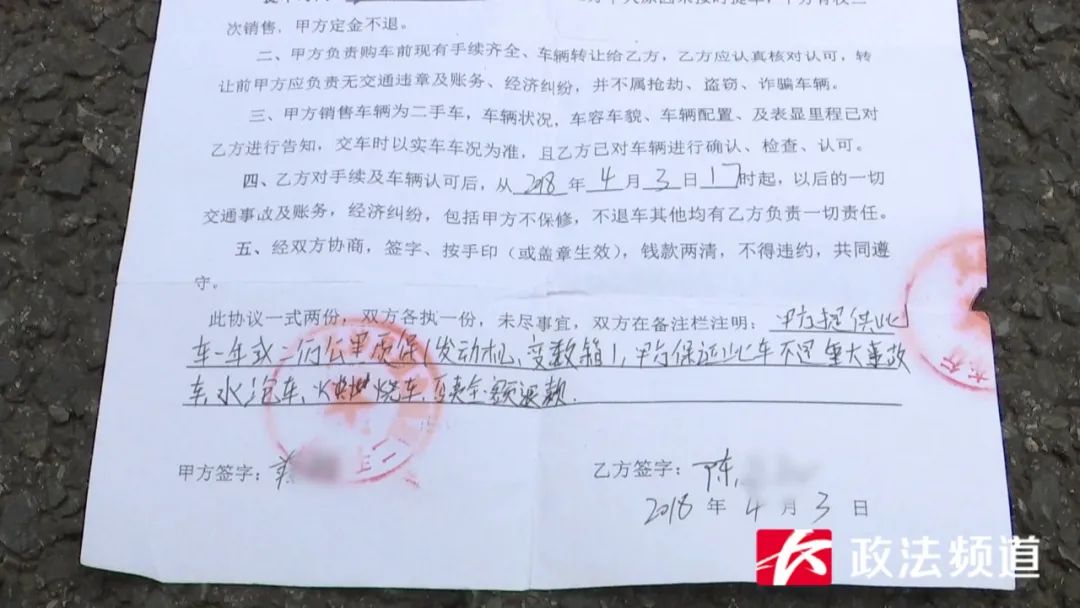 次销售，甲方定金不退。
二、甲方负责购车前现有手续齐全、车辆转让给乙方，乙方应认真核对认可，转
让前甲方应负责无交通违章及账务、经济纠纷，并不属抢劫、盗窃、诈骗车辆。
三、甲方销售车辆为二手车，车辆状况，车容车貌、车辆配置、及表显里程已对
乙方进行告知，交车时以实车车况为准，且乙方已对车辆进行确认、检查、认可。
四、乙方对手续及车辆认可后，从 2018 年 4 月 3 日 17 时起，以后的一切
交通事故及账务，经济纠纷，包括甲方不保修，不退车其他均有乙方负责一切责任。
五、经双方协商，签字、按手印（或盖章生效），钱款两清，不得违约，共同遵
守。
此协议一式两份，双方各执一份，未尽事宜，双方在备注栏注明：甲方提供此
车一年或二万公里质保（发动机、变数箱），甲方保证此车不是重大事故
车、水泡车、火烧车，全额退款.
甲方签字：
乙方签字：陈
2018 年 4 月 3 日
政法频道